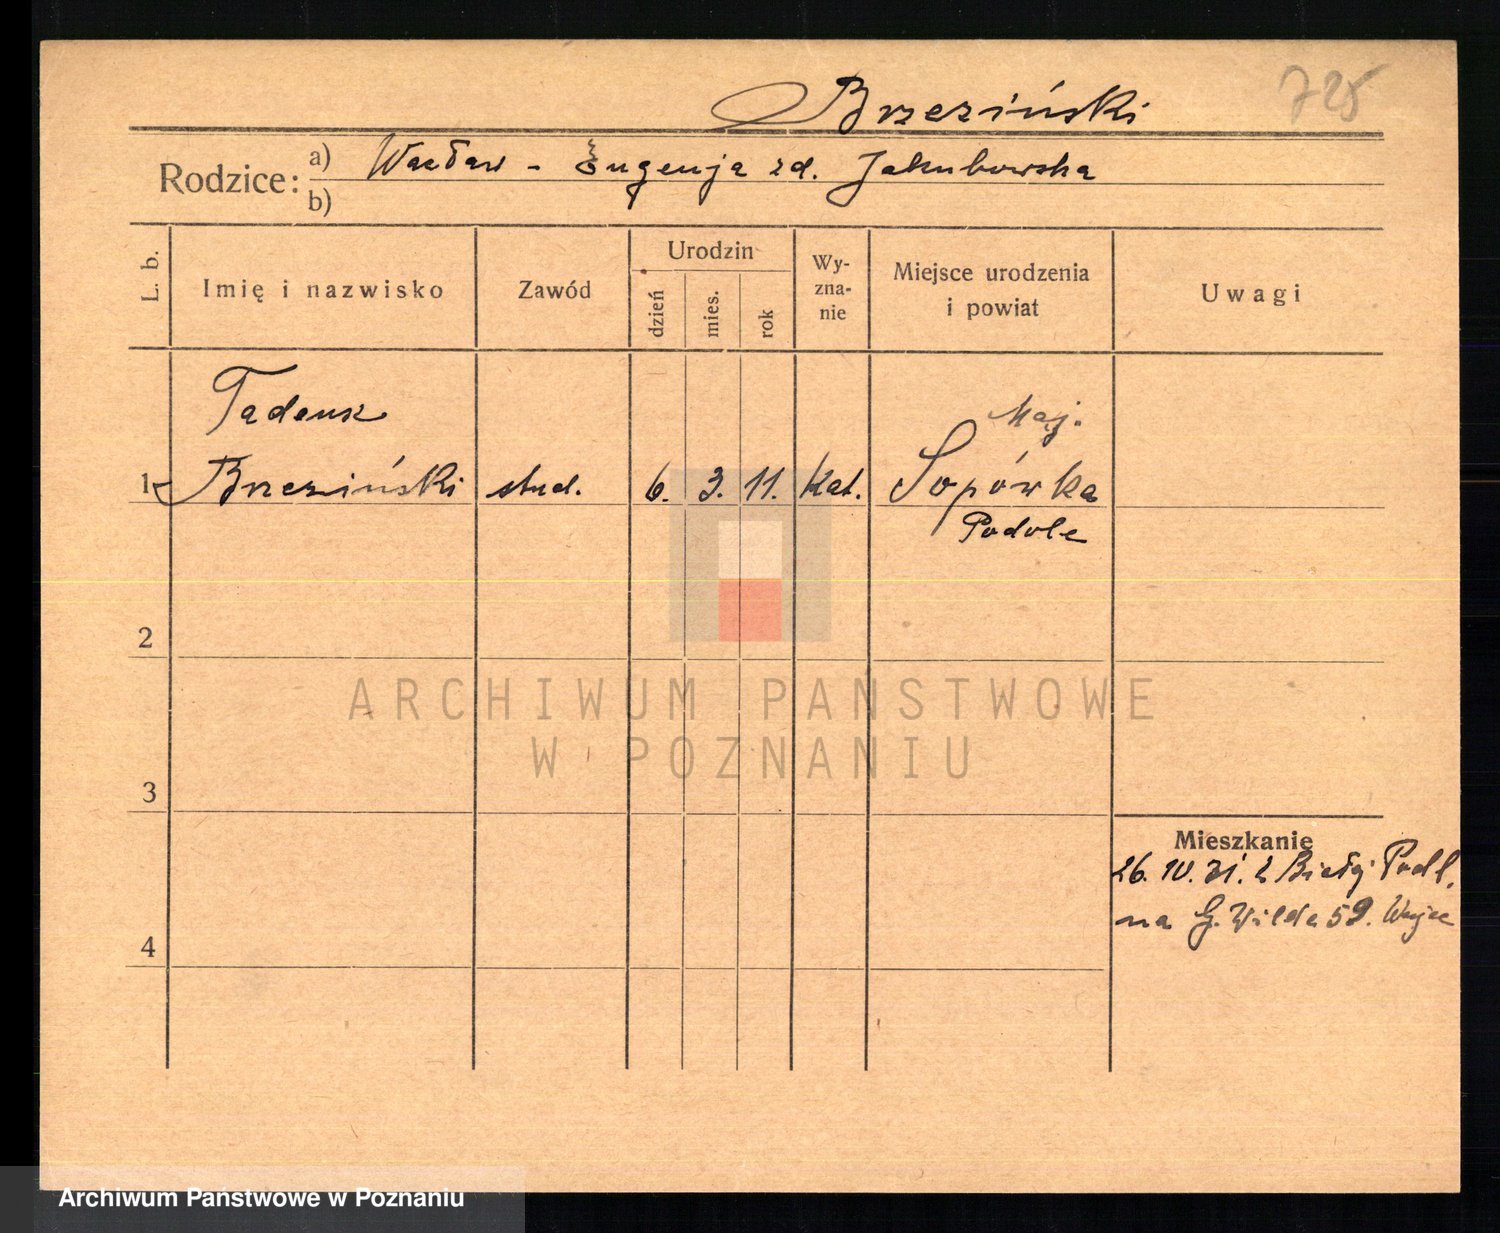 725
Brzeziński
Rodzice:
a) Wacław - Eugenja zd. Jakubowska
b)
L. b.
Imię i nazwisko
Zawód
Urodzin
dzień
mies.
rok
Wy-
zna-
nie
Miejsce urodzenia
i powiat
Uwagi
Tadeusz
Maj.
1 Brzeziński stud. 6. 3. 11. Kat. Sopówka
Podole
2
ARCHIWUM PAŃSTWOWE
W POZNANIU
3
Mieszkanie
26. IV. 31. z Białej Podl.
na G. Wilda 59.
4
Archiwum Państwowe w Poznaniu